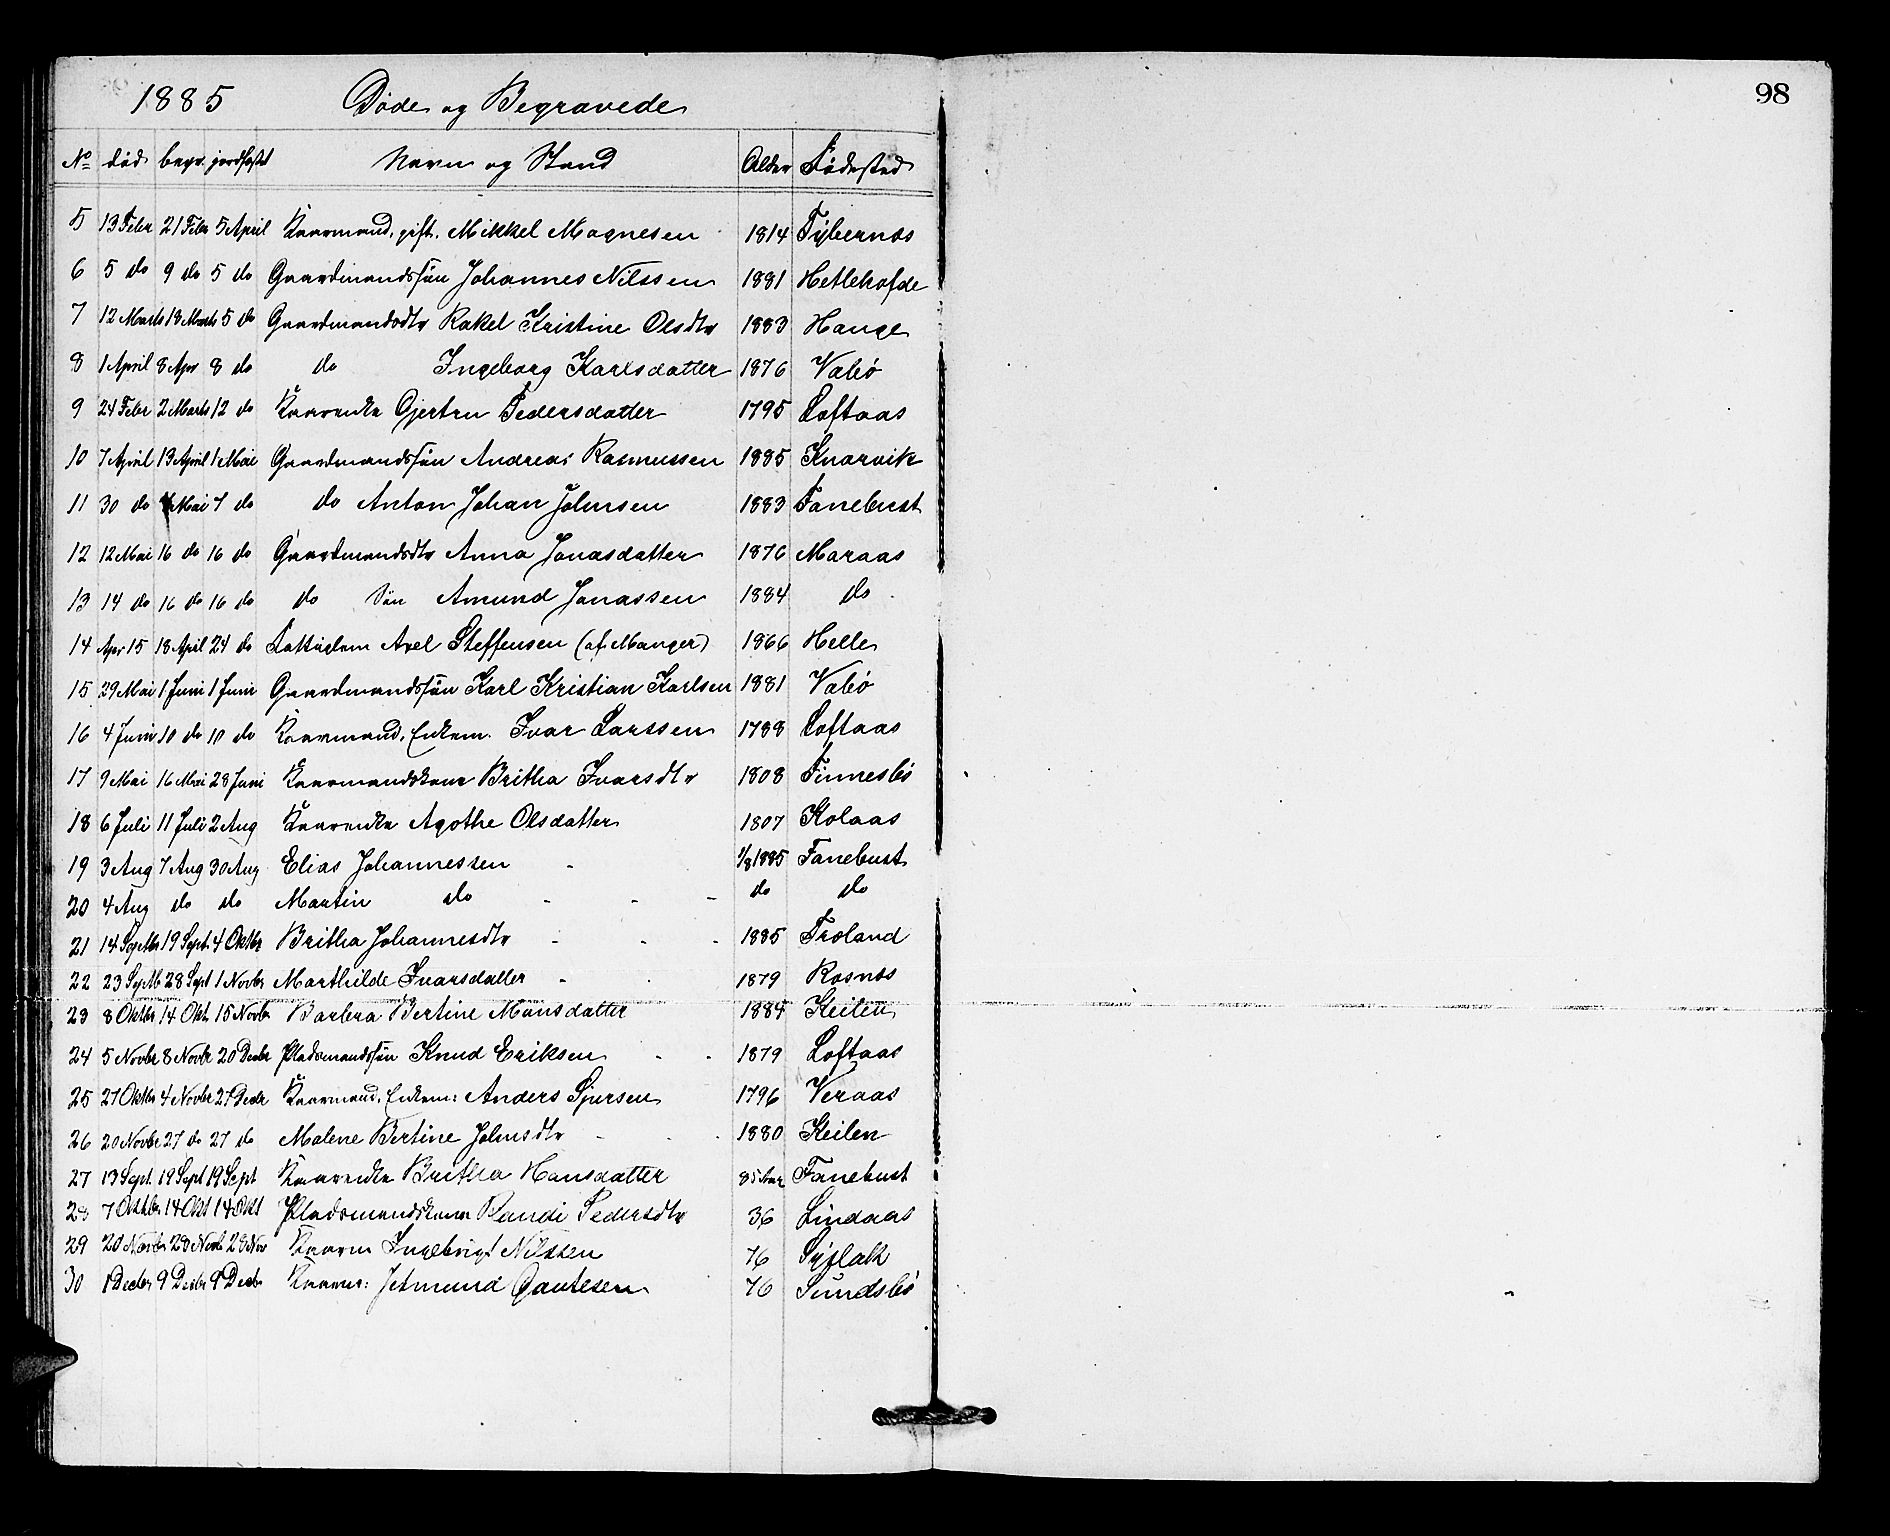 98
1885 Døde og Begravede
No død begr. jordfæstet Navn og Stand Alder Fødested
5 13 Febr 21 Febr 5 April Kaarmand, gift. Mikkel Magnesen 1814 Fybernæs
6 5 do 9 do 5 do Gaardmandssøn Johannes Nilssen 1881 Hetlehofde
7 12 Marts 18 Marts 5 do Gaardmandsdtr Rakel Kristine Olsdtr 1883 Hauge
8 1 April 8 Apr 8 do do Ingeborg Karlsdatter 1876 Vabø
9 24 Febr 2 Marts 12 do Kaarenke Gjertru Pedersdatter 1795 Loftaas
10 7 April 13 April 1 Mai Gaardmandssøn Andreas Rasmussen 1885 Knarvik
11 30 do Mai 7 do do Anton Johan Johnsen 1883 Fanebust
12 12 Mai 16 do 16 do Gaardmandsdtr Anna Jonasdatter 1876 Maraas
13 14 do 16 do 16 do do Søn Amund Jonassen 1884 do
14 Apr 15 18 April 24 do Fattiglem Axel Steffensen (af Manger) 1866 Helle
15 29 Mai 1 Juni 1 Juni Gaardmandssøn Karl Kristian Karlsen 1881 Vabø
16 4 Juni 10 do 10 do Kaarmand, Enkem. Ivar Larssen 1788 Loftaas
17 9 Mai 16 Mai 28 Juni Kaarmandskone Britha Ivarsdtr 1808 Finnesbø
18 6 Juli 11 Juli 2 Aug Kaarenke Agothe Olsdatter 1807 Kolaas
19 3 Aug 7 Aug 30 Aug Elias Johannessen - 1/8 1885 Fanebust
20 4 Aug do do Martin do - - - do do
21 14 Septbr 19 Sept. 4 Oktbr Britha Johannesdtr - - - 1885 Troland
22 23 Septb 28 Sept 1 Novbr Marthilde Ivarsdatter - 1879 Rosnæs
23 8 Oktbr 14 Okt. 15 Novbr Barbra Bertine Monsdatter 1884 Keilen
24 5 Novbr 8 Novbr 20 Decbr Pladsmandssøn Knud Eriksen - - 1879 Loftaas
25 27 Oktbr 4 Novbr 27 Decbr Kaarmand, Enkem: Anders Sjursen 1796 Veraas
26 20 Novbr 27 do 27 do Malene Bertine Johnsdtr - - - 1880 Keilen
27 13 Sept. 19 Sept 19 Sept Kaarenke Britha Hansdatter 85 Aar Fanebust
28 7 Oktbr 14 Okt 14 Okt Pladsmandskone Randi Pedersdtr 36 Lindaas
29 20 Novbr 28 Novb 28 Nov Kaarm Ingebrigt Nilssen 76 Syslak
30 1 Decbr 9 Decbr 9 Decbr Kaarm: Jetmund Gautesen 76 Sundsbø